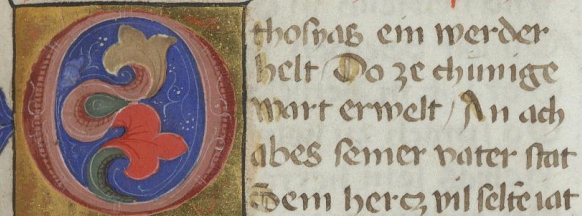 Othosyas ein werder
helt Do ze chunige
wart erwelt / An ach
abes seiner vater stat
Dem hercz vil selten̄ tat